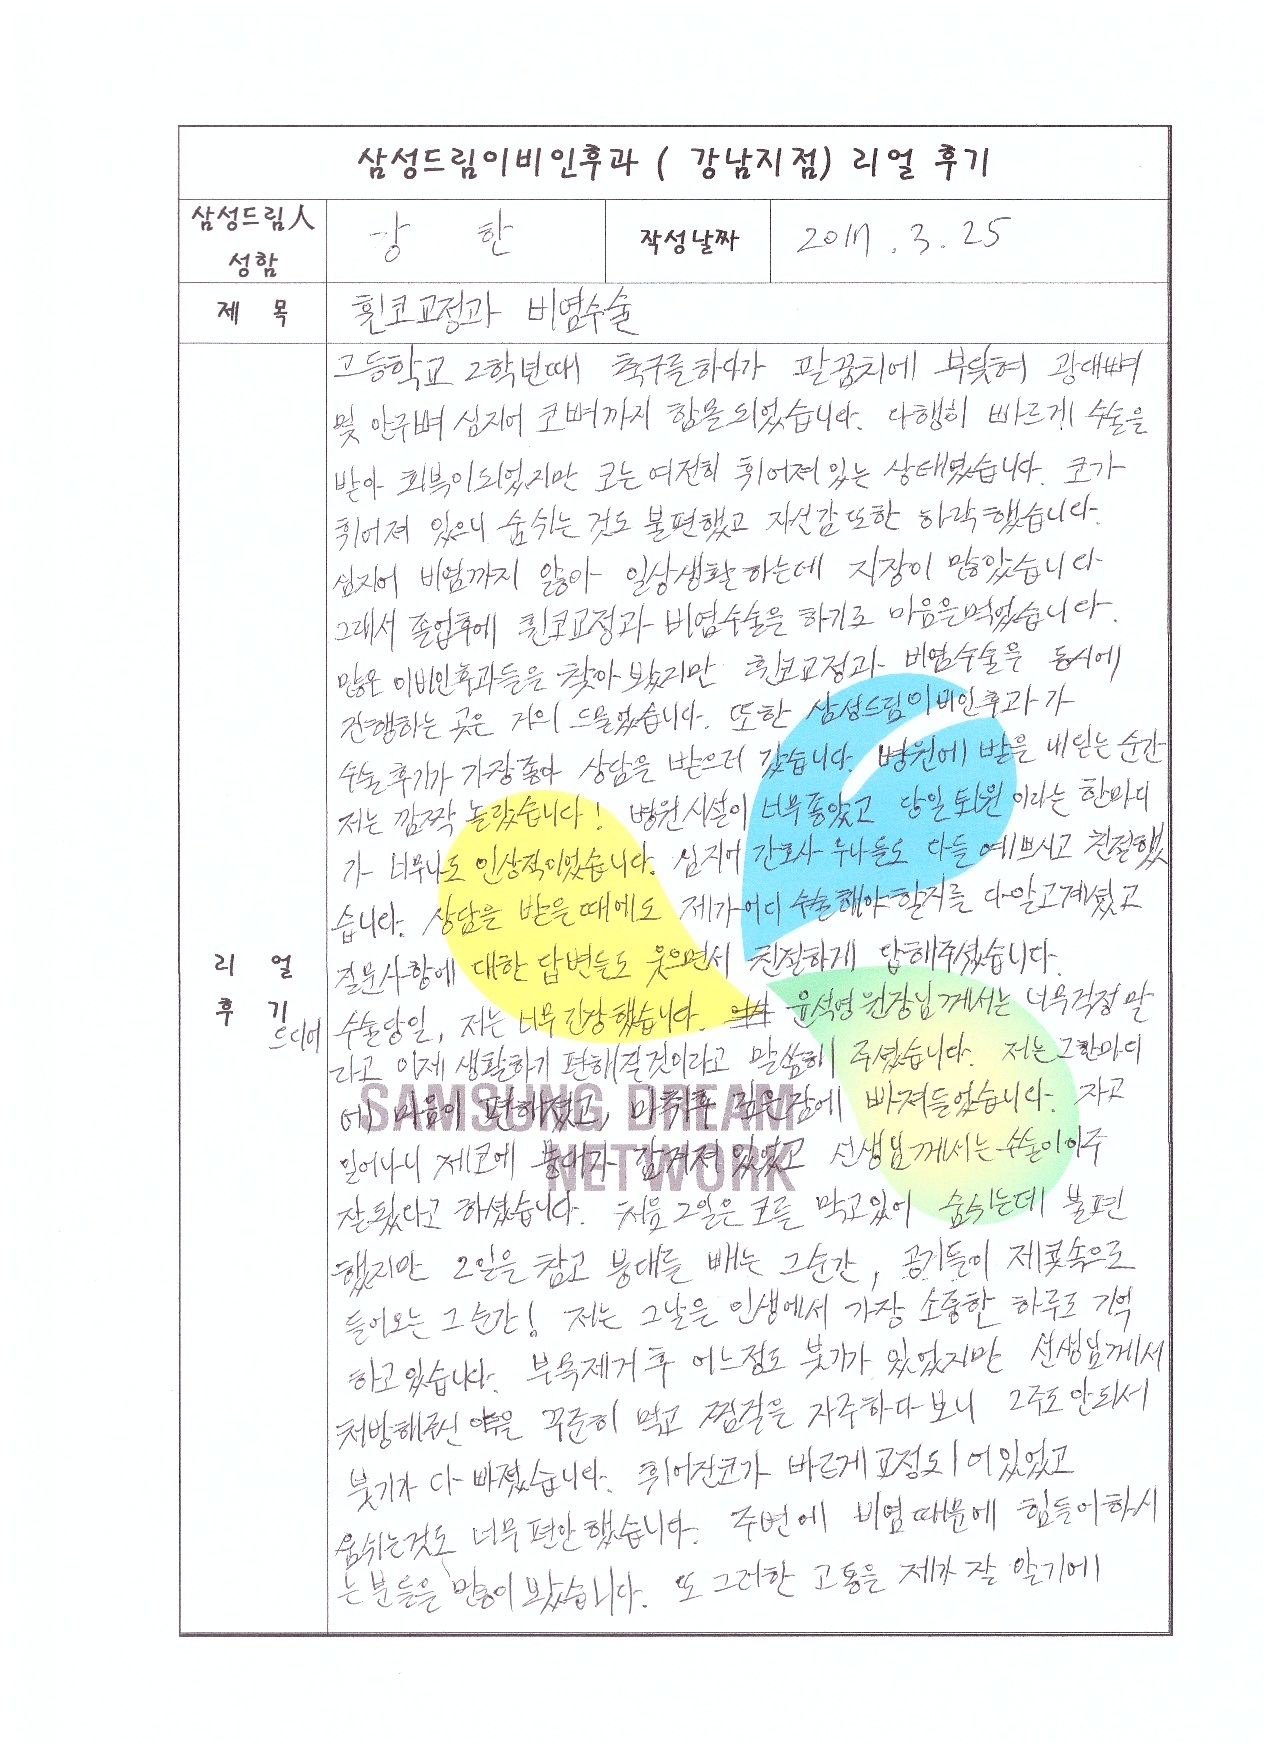 삼성드림이비인후과 ( 강남지점) 리얼 후기
삼성드림人 성함
강 한
작성날짜
2017. 3. 25
제 목
휜코교정과 비염수술
리 얼
후 기
고등학교 2학년때 축구를하다가 팔꿈치에 부딪혀 광대뼈
및 안구뼈 심지어 코뼈까지 함몰되었습니다. 다행히 빠르게 수술을
받아 회복이되었지만 코는 여전히 휘어져있는 상태였습니다. 코가
휘어져 있으니 숨쉬는 것도 불편했고 자신감또한 하락했습니다.
심지어 비염까지 앓아 일상생활하는데 지장이 많았습니다
그래서 졸업후에 휜코교정과 비염수술을 하기로 마음을먹었습니다.
많은 이비인후과들을 찾아보았지만 휜코교정과 비염수술을 동시에
진행하는 곳은 거의 드물었습니다. 또한 삼성드림이비인후과가
수술후기가 가장좋아 상담을 받으러 갔습니다. 병원에 발을 내딛는순간
저는 깜짝 놀랐습니다! 병원시설이 너무좋았고 당일퇴원 이라는 한마디
가 너무나도 인상적이었습니다. 심지어 간호사 누나들도 다들 예쁘시고 친절했
습니다. 상담을 받을때에도 제가어디 수술해야할지를 다알고계셨고
질문사항에 대한 답변들도 웃으면서 친절하게 답해주셨습니다.
드디어 수술당일, 저는 너무긴장했습니다. 윤석영원장님께서는 너무걱정말
라고 이제 생활하기 편해질것이라고 말씀해 주셨습니다. 저는그한마디
에 마음이 편해졌고, 마취후 깊은잠에 빠져들었습니다. 자고
일어나니 제코에 붕대가 감겨져있었고 선생님께서는수술이아주
잘됐다고 하셨습니다. 처음 2일은 코를 막고있어 숨쉬는데 불편
했지만 2일을 참고 붕대를 빼는 그순간, 공기들이 제콧속으로
들어오는 그순간! 저는 그날은 인생에서 가장 소중한 하루로 기억
하고있습니다. 부목제거후 어느정도 붓기가 있었지만 선생님께서
처방해주신 약을 꾸준히 먹고 찜질을 자주하다보니 2주도안되서
붓기가 다빠졌습니다. 휘어진코가 바르게교정되어있었고
숨쉬는것도 너무편안했습니다. 주변에 비염때문에 힘들어하시
는분들을 많이 봤습니다. 또 그러한 고통을 제가 잘 알기에
SAMSUNG DREAM
NETWORK